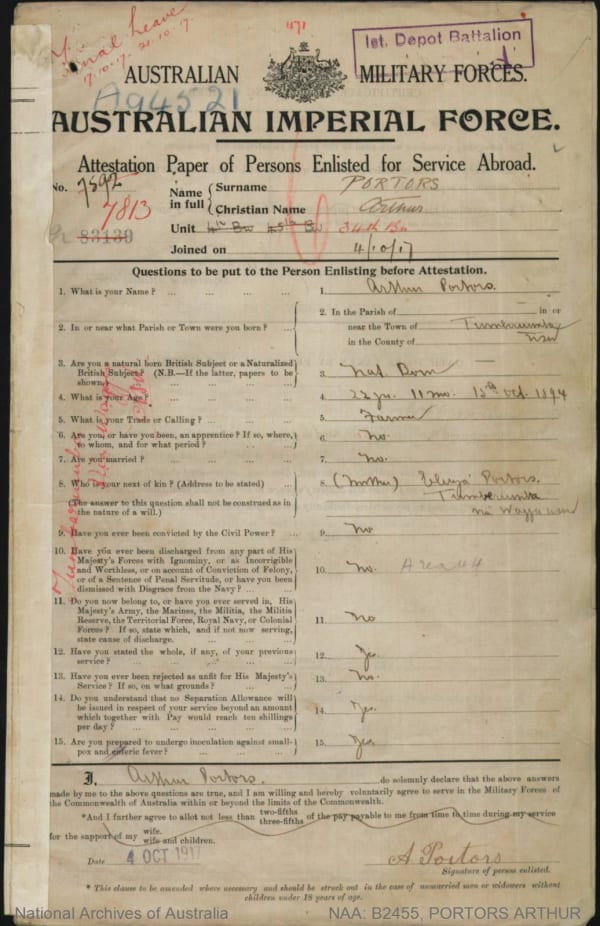 Final Leave
17.10.17. 21.10.17
1st. Depot Battalion
AUSTRALIAN MILITARY FORCES.
A94521
AUSTRALIAN IMPERIAL FORCE.
Attestation Paper of Persons Enlisted for Service Abroad.
No. 7592
7813
83139
Name in full { Surname PORTORS
Christian Name Arthur
Unit 34th Bn
Joined on 4/10/17
Questions to be put to the Person Enlisting before Attestation.
1. What is your Name ? ... ... ... ... 1. Arthur Portors.
2. In or near what Parish or Town were you born ? ... 2. In the Parish of in or
near the Town of Tumbarumba
in the County of NSW
3. Are you a natural born British Subject or a Naturalized
British Subject ? (N.B.—If the latter, papers to be
shown.) 3. Nat. Born
4. What is your Age ? ... ... ... 4. 22 yrs. 11 mo. 15th Oct. 1894
5. What is your Trade or Calling ? ... ... ... 5. Farmer
6. Are you, or have you been, an apprentice ? If so, where,
to whom, and for what period ? ... ... 6. No.
7. Are you married ? ... ... ... ... 7. No.
8. Who is your next of kin ? (Address to be stated) ... 8. (Mother) Portors.
Tumbarumba
(The answer to this question shall not be construed as in
the nature of a will.) via Wagga NSW
9. Have you ever been convicted by the Civil Power ? ... 9. No
10. Have you ever been discharged from any part of His
Majesty's Forces with Ignominy, or as Incorrigible
and Worthless, or on account of Conviction of Felony,
or of a Sentence of Penal Servitude, or have you been
dismissed with Disgrace from the Navy ? ... ... 10. No. Area 44
11. Do you now belong to, or have you ever served in, His
Majesty's Army, the Marines, the Militia, the Militia
Reserve, the Territorial Force, Royal Navy, or Colonial
Forces ? If so, state which, and if not now serving,
state cause of discharge. ... ... ... 11. No
12. Have you stated the whole, if any, of your previous
service ? ... ... ... ... 12. Yes.
13. Have you ever been rejected as unfit for His Majesty's
Service ? If so, on what grounds ? ... ... 13. No.
14. Do you understand that no Separation Allowance will
be issued in respect of your service beyond an amount
which together with Pay would reach ten shillings
per day ? ... ... ... ... 14. Yes.
15. Are you prepared to undergo inoculation against small-
pox and enteric fever ? ... ... ... 15. Yes
I, Arthur Portors. do solemnly declare that the above answers
made by me to the above questions are true, and I am willing and hereby voluntarily agree to serve in the Military Forces of
the Commonwealth of Australia within or beyond the limits of the Commonwealth.
*And I further agree to allot not less than two-fifths three-fifths of the pay payable to me from time to time during my service
for the support of my wife. wife and children.
Date 4 OCT 1917 A Portors
Signature of person enlisted.
* This clause to be amended where necessary and should be struck out in the case of unmarried men or widowers without
children under 18 years of age.
National Archives of Australia NAA: B2455, PORTORS ARTHUR